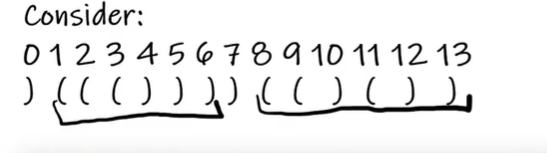 Consider:
0 1 2 3 4 5 6 7 8 9 10 11 12 13
) ( ( ( ) ) ) ) ( ( ) ( ) )